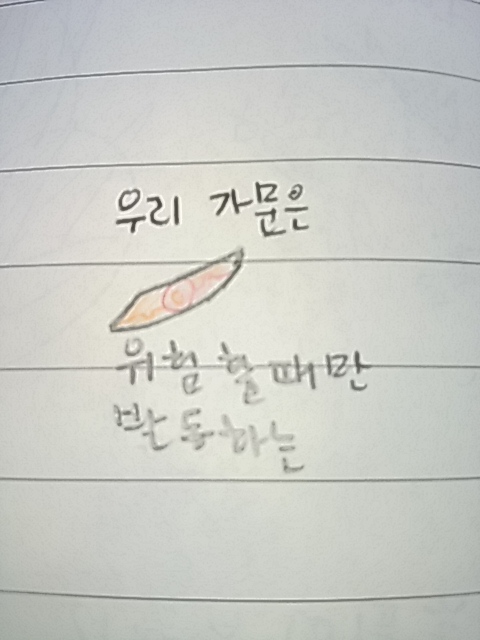 우리 가문은
위험할때만
박동하는